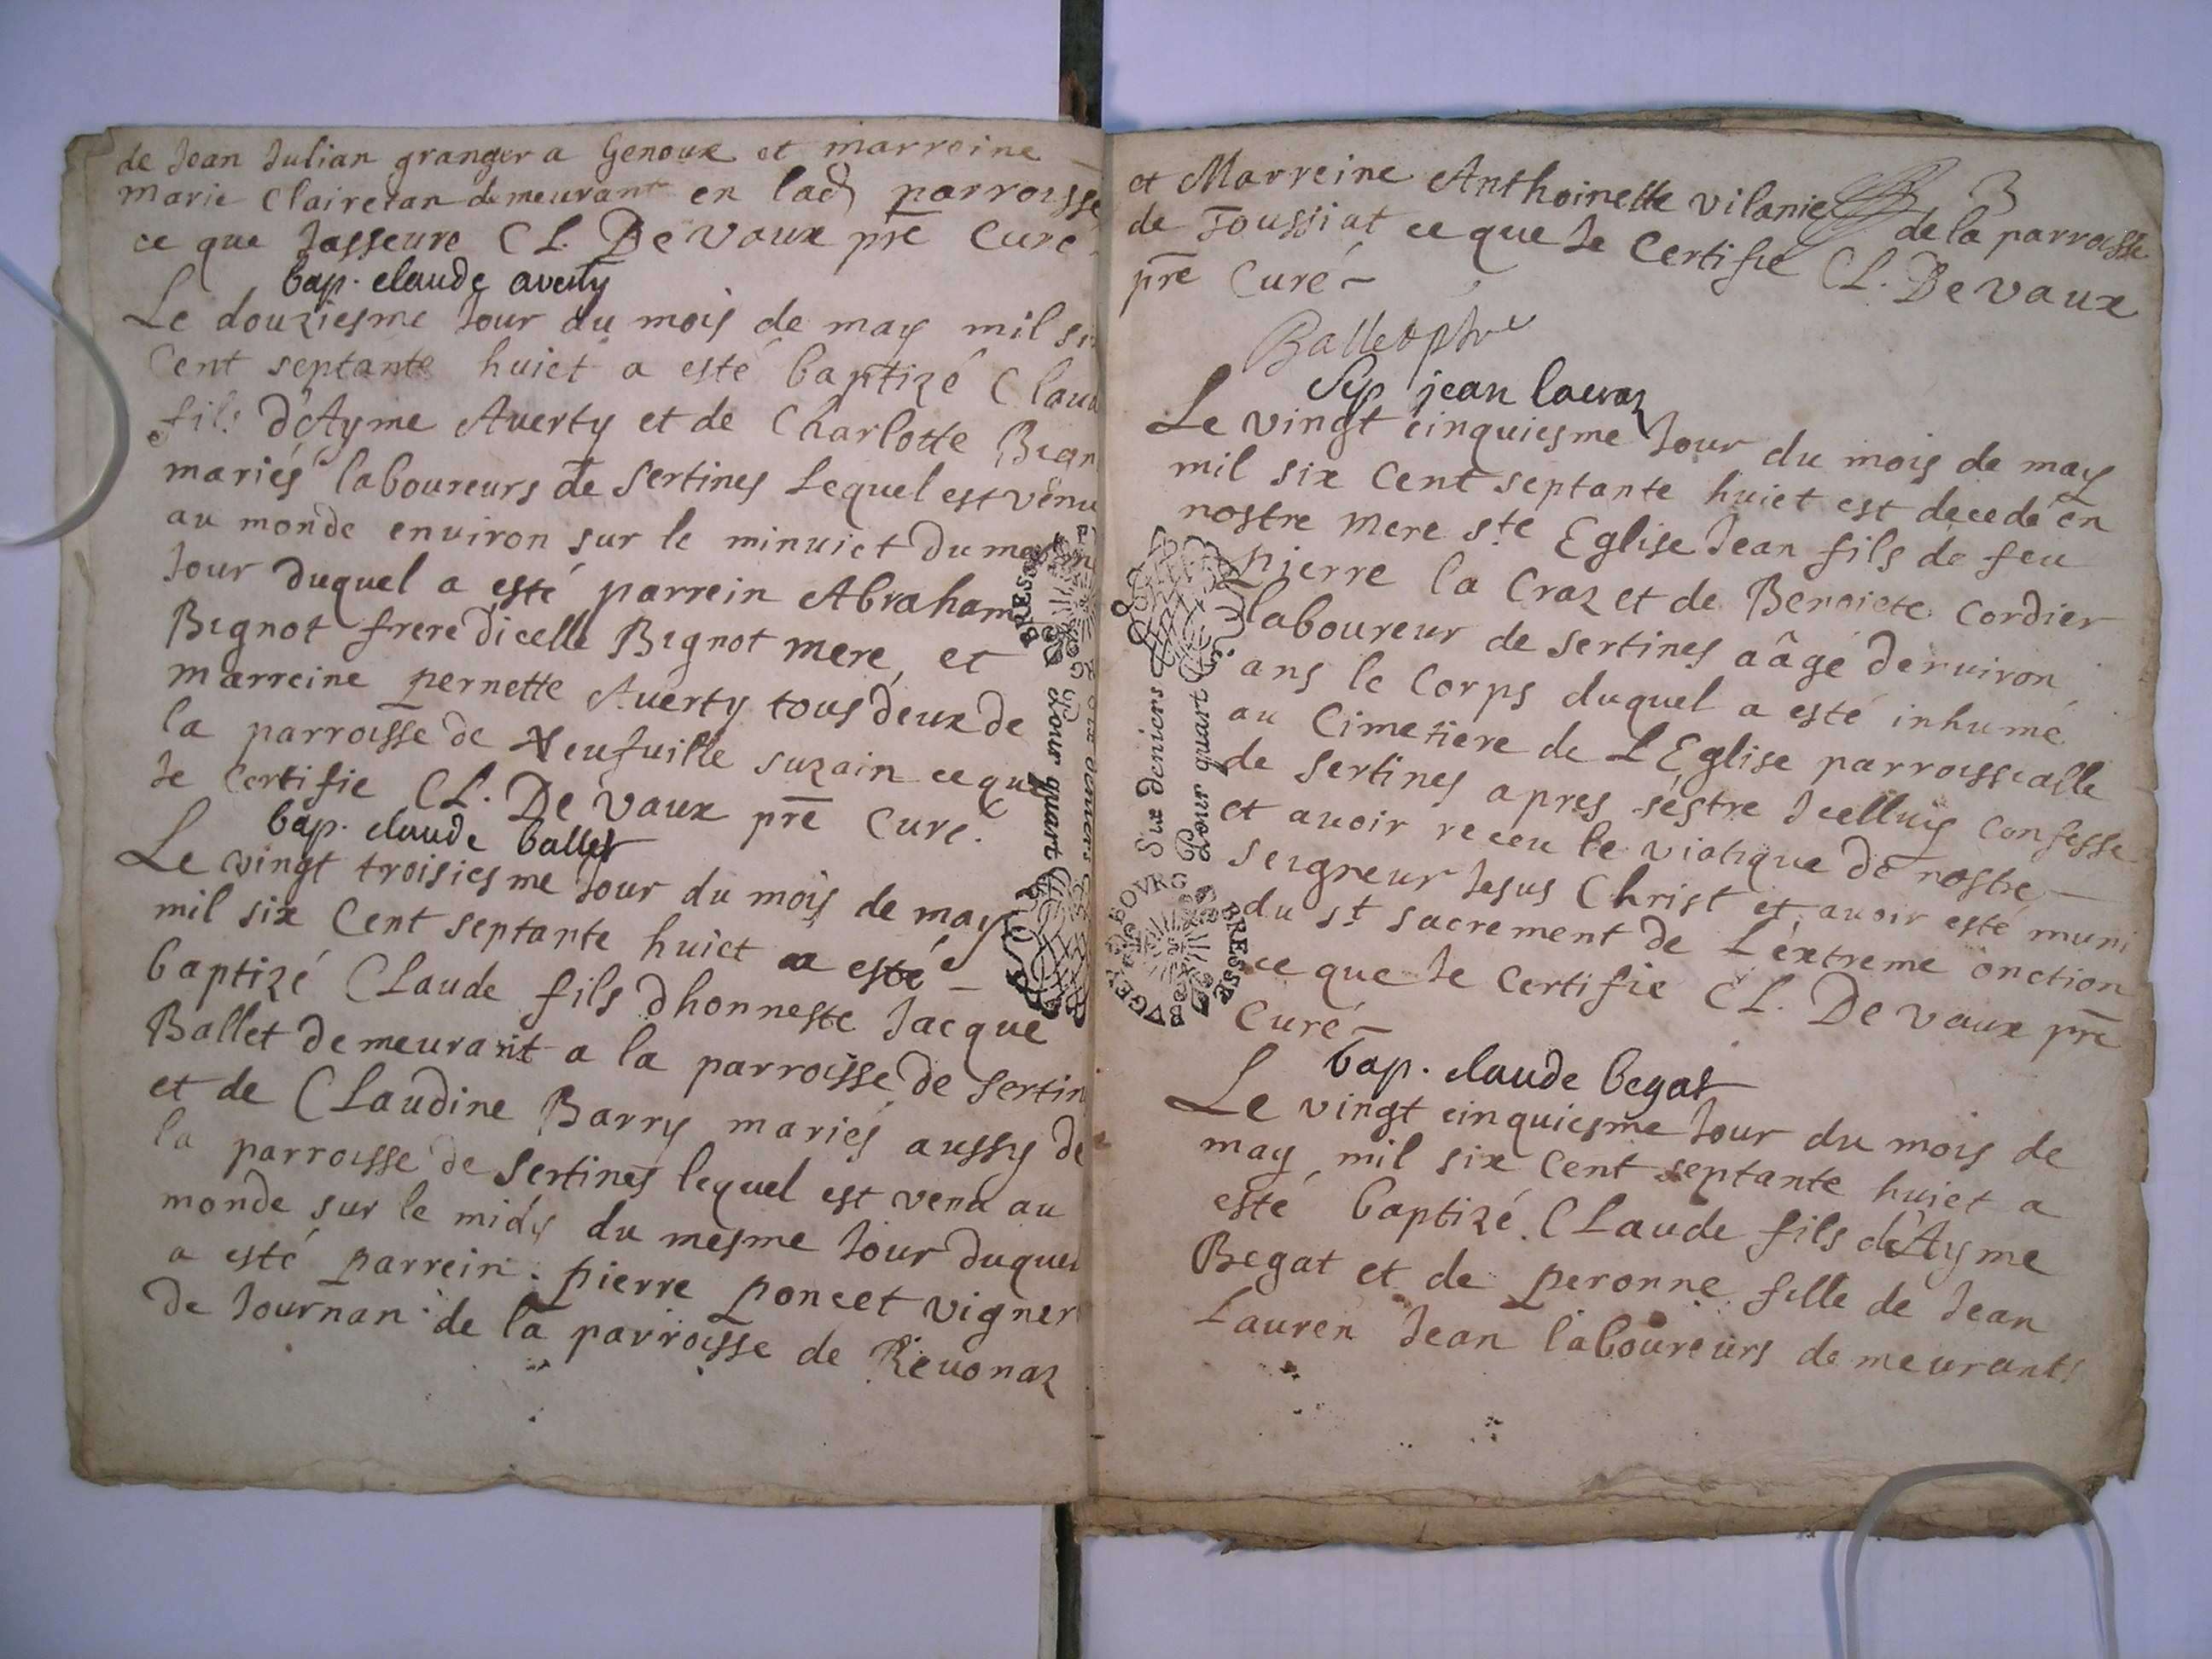 de Jean Julian granger a Genoux et marreine
marie Claireran demeurant en lad parroisse
ce que Jasseure CL. De Vaux pre Curé
bap. claude averty
Le douziesme Jour du mois de may mil si
Cent septante huict a esté baptizé Claud
fils d'Ayme Averty et de Charlotte Bign
mariés laboureurs de Sertines Lequel est venu
au monde environ sur le minuict du mesme
Jour duquel a esté parrein Abraham
Bignot frere dicelle Bignot mere, et
marreine pernette Averty tous deux de
la parroisse de Neufuille surain ce que
Je Certifie CL. De Vaux pre Curé.
bap. claude ballet
Le vingt troisiesme Jour du mois de may
mil six Cent septante huict a esté
baptizé CLaude fils dhonneste Jacque
Ballet demeurant a la parroisse de Sertin
et de CLaudine Barry mariés aussy de
la parroisse de Sertines lequel est venu au
monde sur le midy du mesme Jour duquel
a esté parrein pierre poncet vigner
de Journan de la parroisse de Revonaz
et Marreine Anthoinette vilanie de la parroisse
de Toussiat ce que Je Certifie CL. De Vaux
pre Curé
Ballet
Sep jean lacraz
Le vingt cinquiesme Jour du mois de may
mil six Cent septante huict est decedé en
nostre Mere ste Eglise Jean fils de feu
pierre la Craz et de Benoiete Cordier
laboureur de Sertines aâgé denuiron
ans le Corps duquel a esté inhumé
au Cimetiere de LEglise parroissialle
de Sertines apres sestre Jcelluy Confesse
et auoir receu le viatique de nostre
Seigneur Jesus Christ et auoir esté muni
du st sacrement de Léxtreme onction
ce que Je Certifie CL. De Vaux pre
Curé
bap. claude begat
Le vingt cinquiesme Jour du mois de
may mil six Cent septante huict a
esté baptizé CLaude fils d'Ayme
Begat et de peronne fille de Jean
Lauren Jean laboureurs demeurants
BRESSE
Pour quart
Six deniers
Six deniers
Pour quart
BOVRG
BRESSE
BVGEY